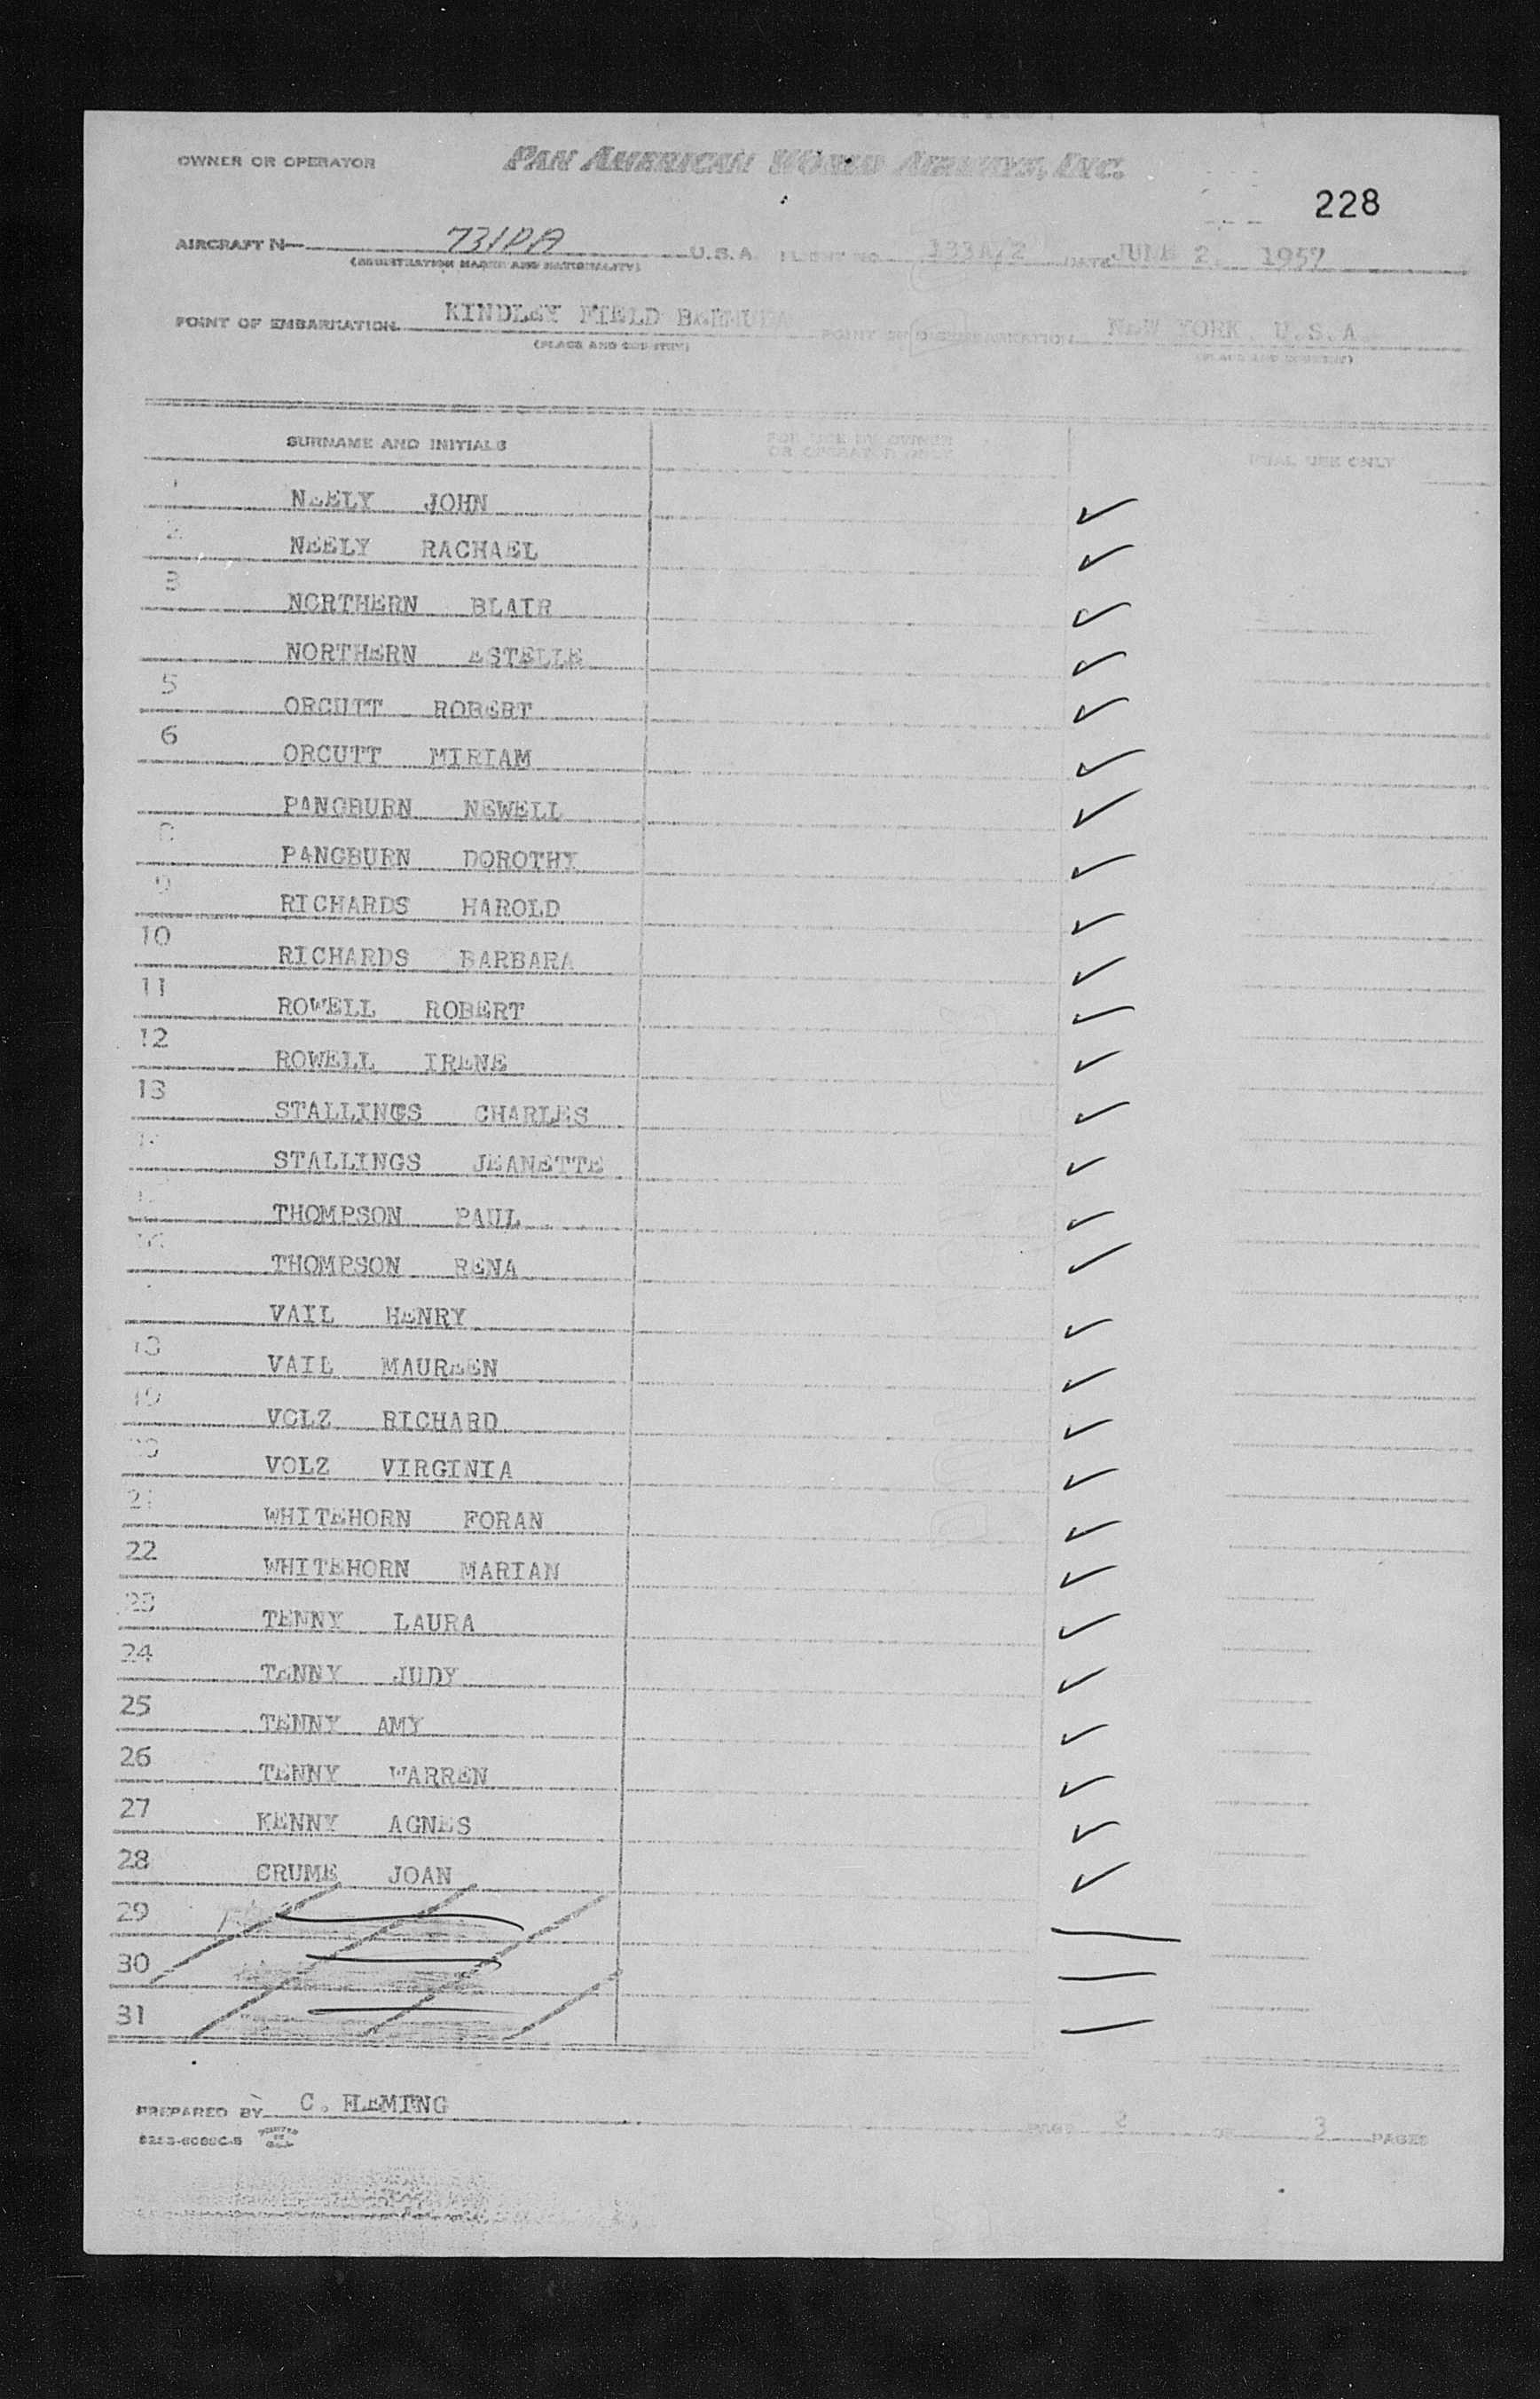 OWNER OR OPERATOR PAN AMERICAN WORLD AIRWAYS, INC.
228
AIRCRAFT N- 731PA U.S.A. FLIGHT NO. 133A/2 DATE JUNE 2, 1957
(REGISTRATION MARKS AND NATIONALITY)
POINT OF EMBARKATION KINDLEY FIELD BERMUDA POINT OF DISEMBARKATION NEW YORK, U.S.A.
(PLACE AND COUNTRY) (PLACE AND COUNTRY)
SURNAME AND INITIALS FOR USE BY OWNER OR OPERATOR ONLY USE ONLY
1 NEELY JOHN ✓
2 NEELY RACHAEL ✓
3 NORTHERN BLAIR ✓
NORTHERN ESTELLE ✓
5 ORCUTT ROBERT ✓
6 ORCUTT MIRIAM ✓
PANGBURN NEWELL ✓
8 PANGBURN DOROTHY ✓
9 RICHARDS HAROLD ✓
10 RICHARDS BARBARA ✓
11 ROWELL ROBERT ✓
12 ROWELL IRENE ✓
13 STALLINGS CHARLES ✓
14 STALLINGS JEANETTE ✓
THOMPSON PAUL ✓
16 THOMPSON RENA ✓
VAIL HENRY ✓
18 VAIL MAUREEN ✓
19 VOLZ RICHARD ✓
20 VOLZ VIRGINIA ✓
21 WHITEHORN FORAN ✓
22 WHITEHORN MARIAN ✓
23 TENNY LAURA ✓
24 TENNY JUDY ✓
25 TENNY AMY ✓
26 TENNY WARREN ✓
27 KENNY AGNES ✓
28 CRUME JOAN ✓
29
30
31
PREPARED BY C. FLEMING PAGE 2 OF 3 PAGES
PRINTED IN U.S.A.